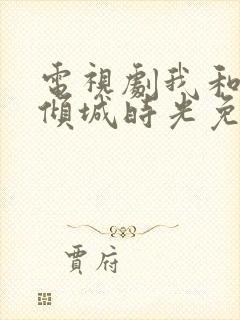 電視劇我和
傾城時光免
賈府